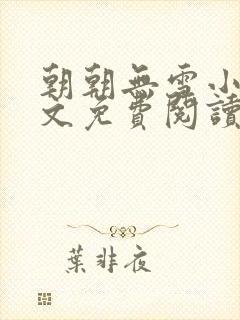 朝朝無雪小
文免費閱讀
葉非夜